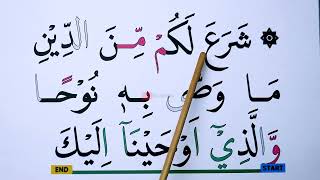 ۞ شَرَعَ لَكُمْ مِّنَ الدِّيْنِ
مَا وَصّٰى بِهٖ نُوْحًا
وَّالَّذِيْٓ اَوْحَيْنَآ اِلَيْكَ
END START